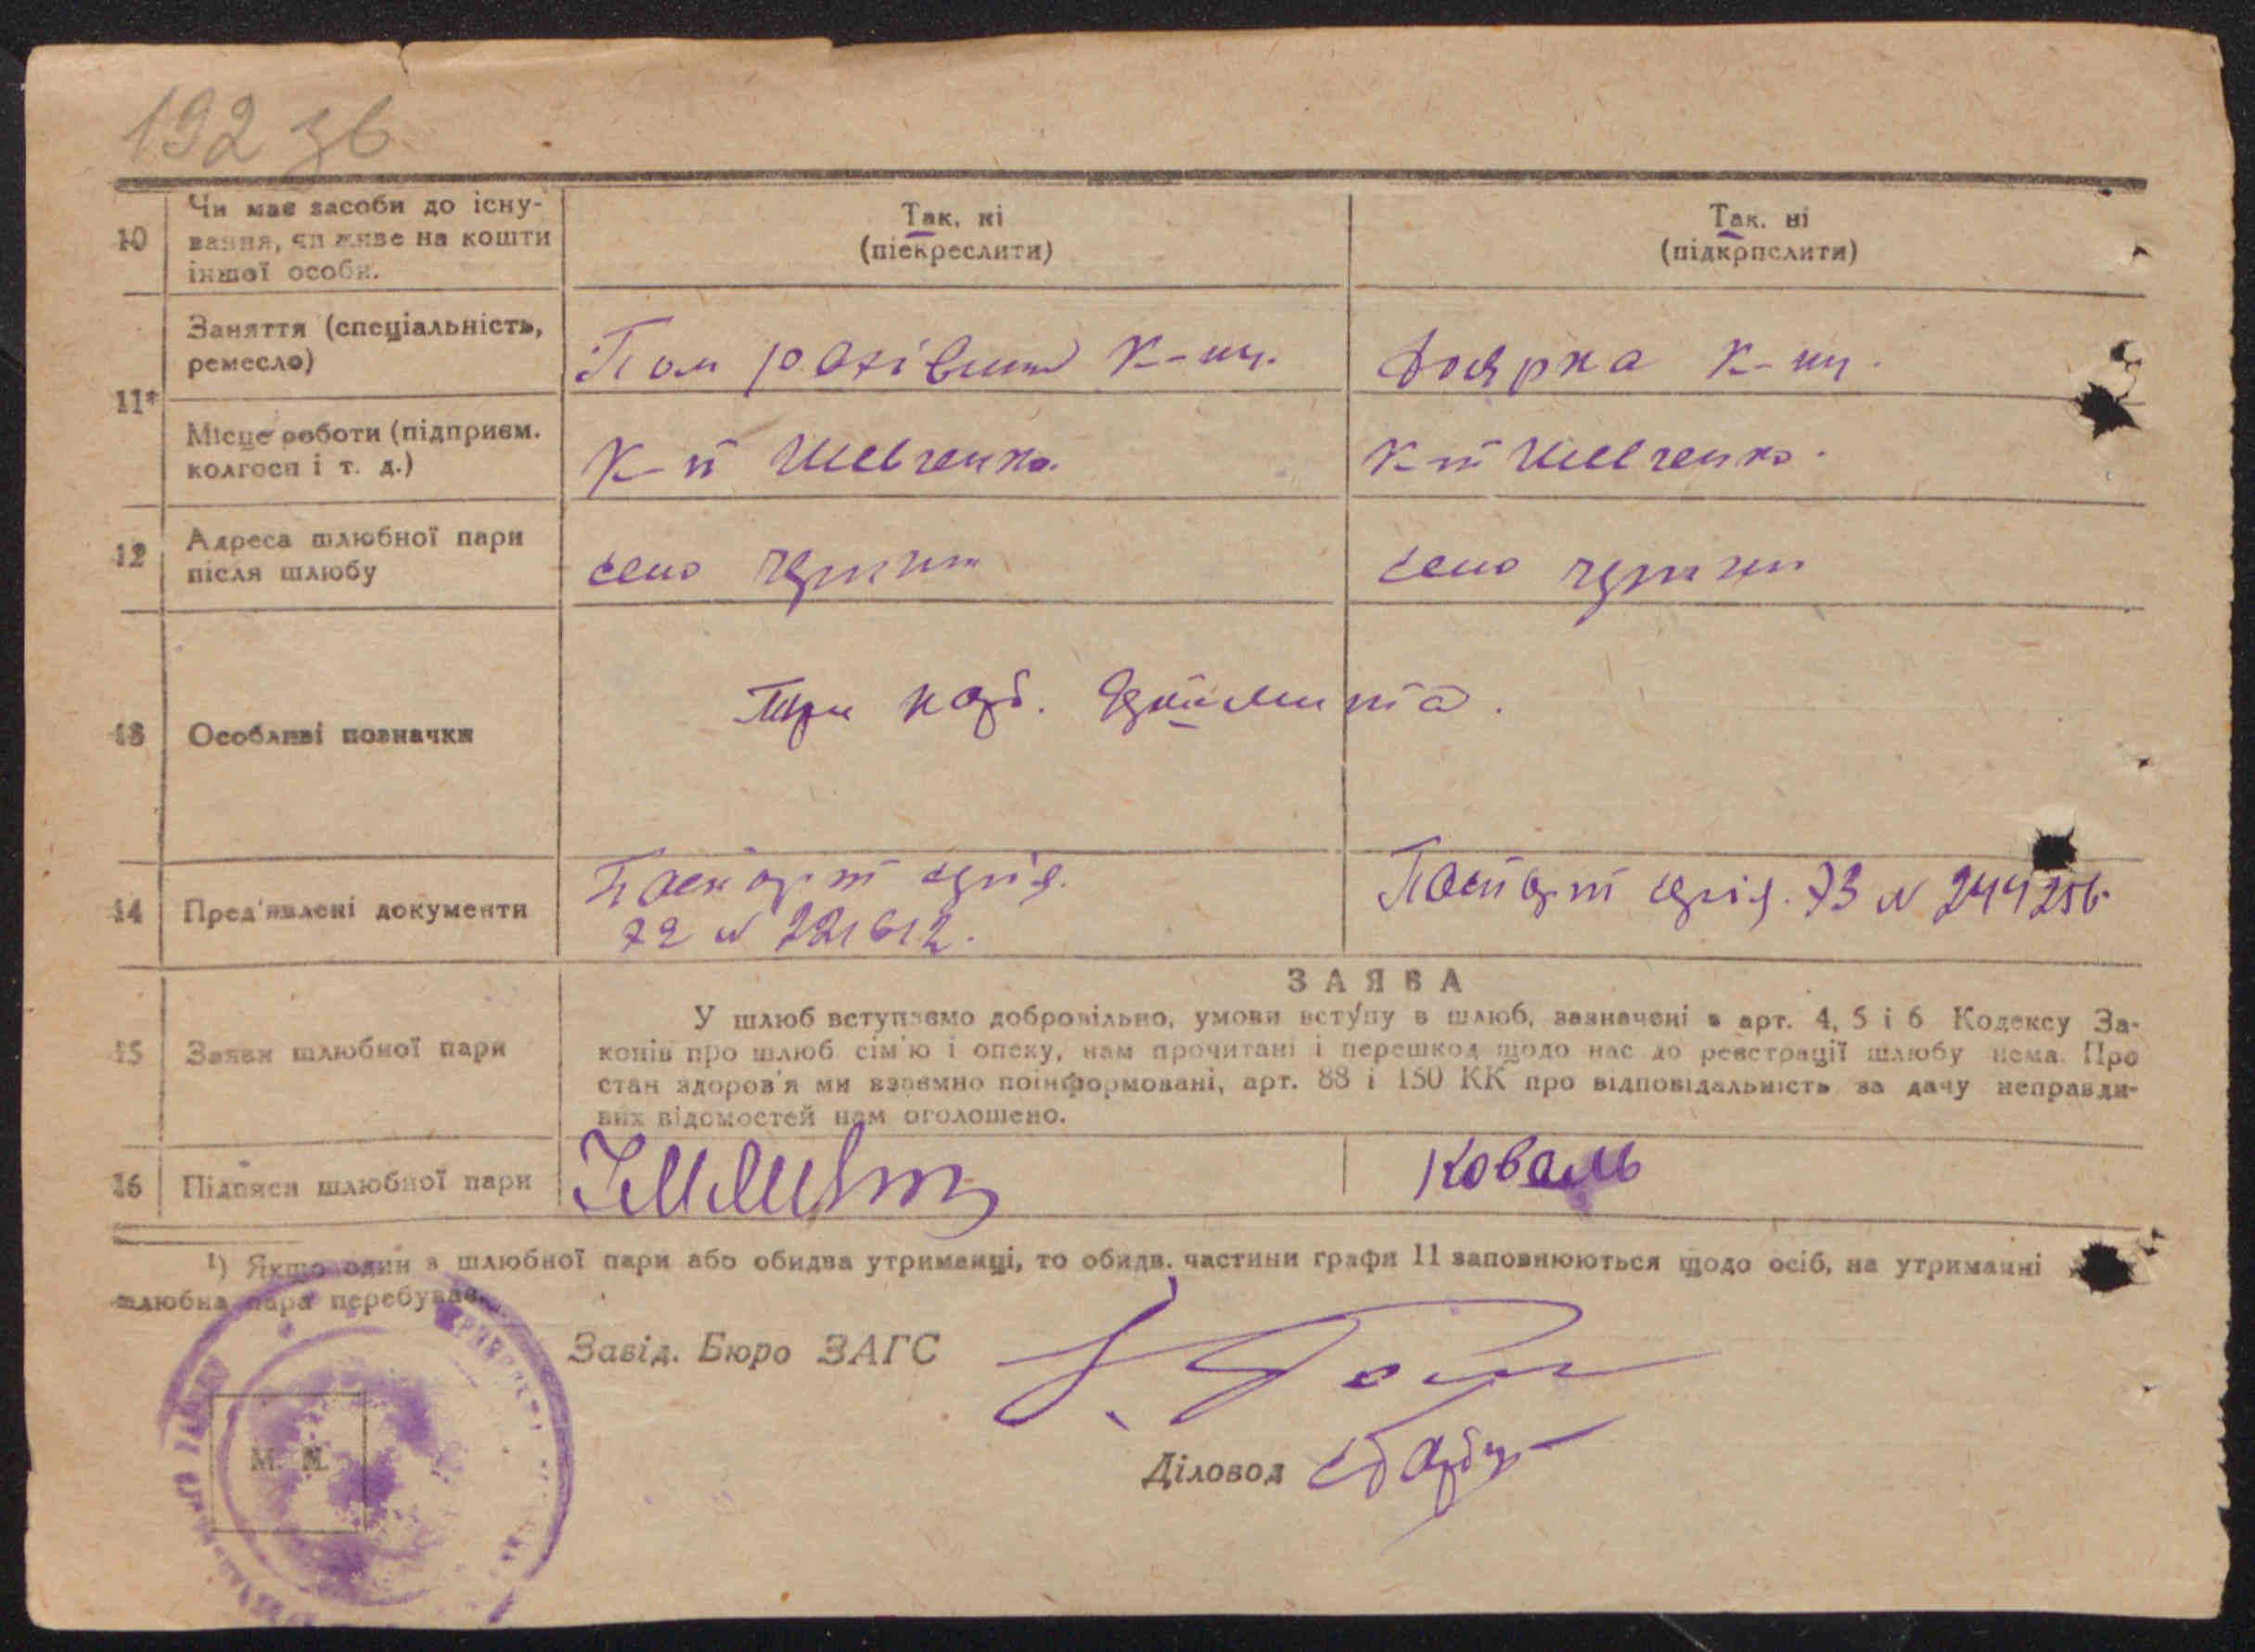 192 зв
10 Чи має засоби до існу-
вання, чи живе на кошти
іншої особи.
Так, ні
(піекреслити)
Так. ні
(підкрпслити)
11*
Заняття (спеціальність,
ремесло)
Пом К-пу.
Доярка К-пу.
Місце роботи (підприєм.
колгосп і т. д.)
К-п Шевченко.
К-п Шевченко.
12 Адреса шлюбної пари
після шлюбу
село
село
13 Особливі позначки
14 Пред'явлені документи
Паспорт серія.
72 N 221612.
Паспорт серія. 73 N 244256
15 Заяви шлюбної пари
ЗАЯВА
У шлюб вступаємо добровільно, умови вступу в шлюб, зазначені в арт. 4, 5 і 6 Кодексу За-
конів про шлюб сім'ю і опеку, нам прочитані і перешкод щодо нас до реєстрації шлюбу нема. Про
стан здоров'я ми взаємно поінформовані, арт. 88 і 150 КК про відповідальність за дачу неправди-
вих відомостей нам оголошено.
16 Підписи шлюбної пари
Коваль
¹) Якщо один з шлюбної пари або обидва утриманці, то обидв. частини графи 11 заповнюються щодо осіб, на утриманні
шлюбна пара перебуває.
Завід. Бюро ЗАГС
М. П.
Діловод